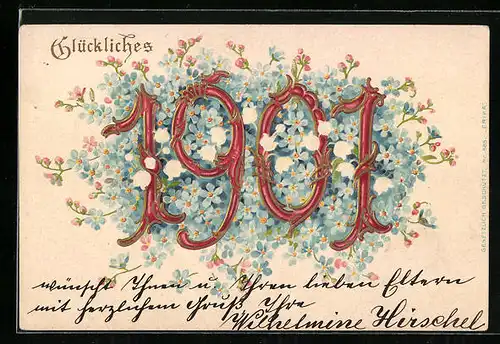 Glückliches
1901
wünscht Ihnen u. Ihren lieben Eltern
mit herzlichem Gruß Ihre
Wilhelmine Hirschel
GESETZLICH GESCHÜTZT